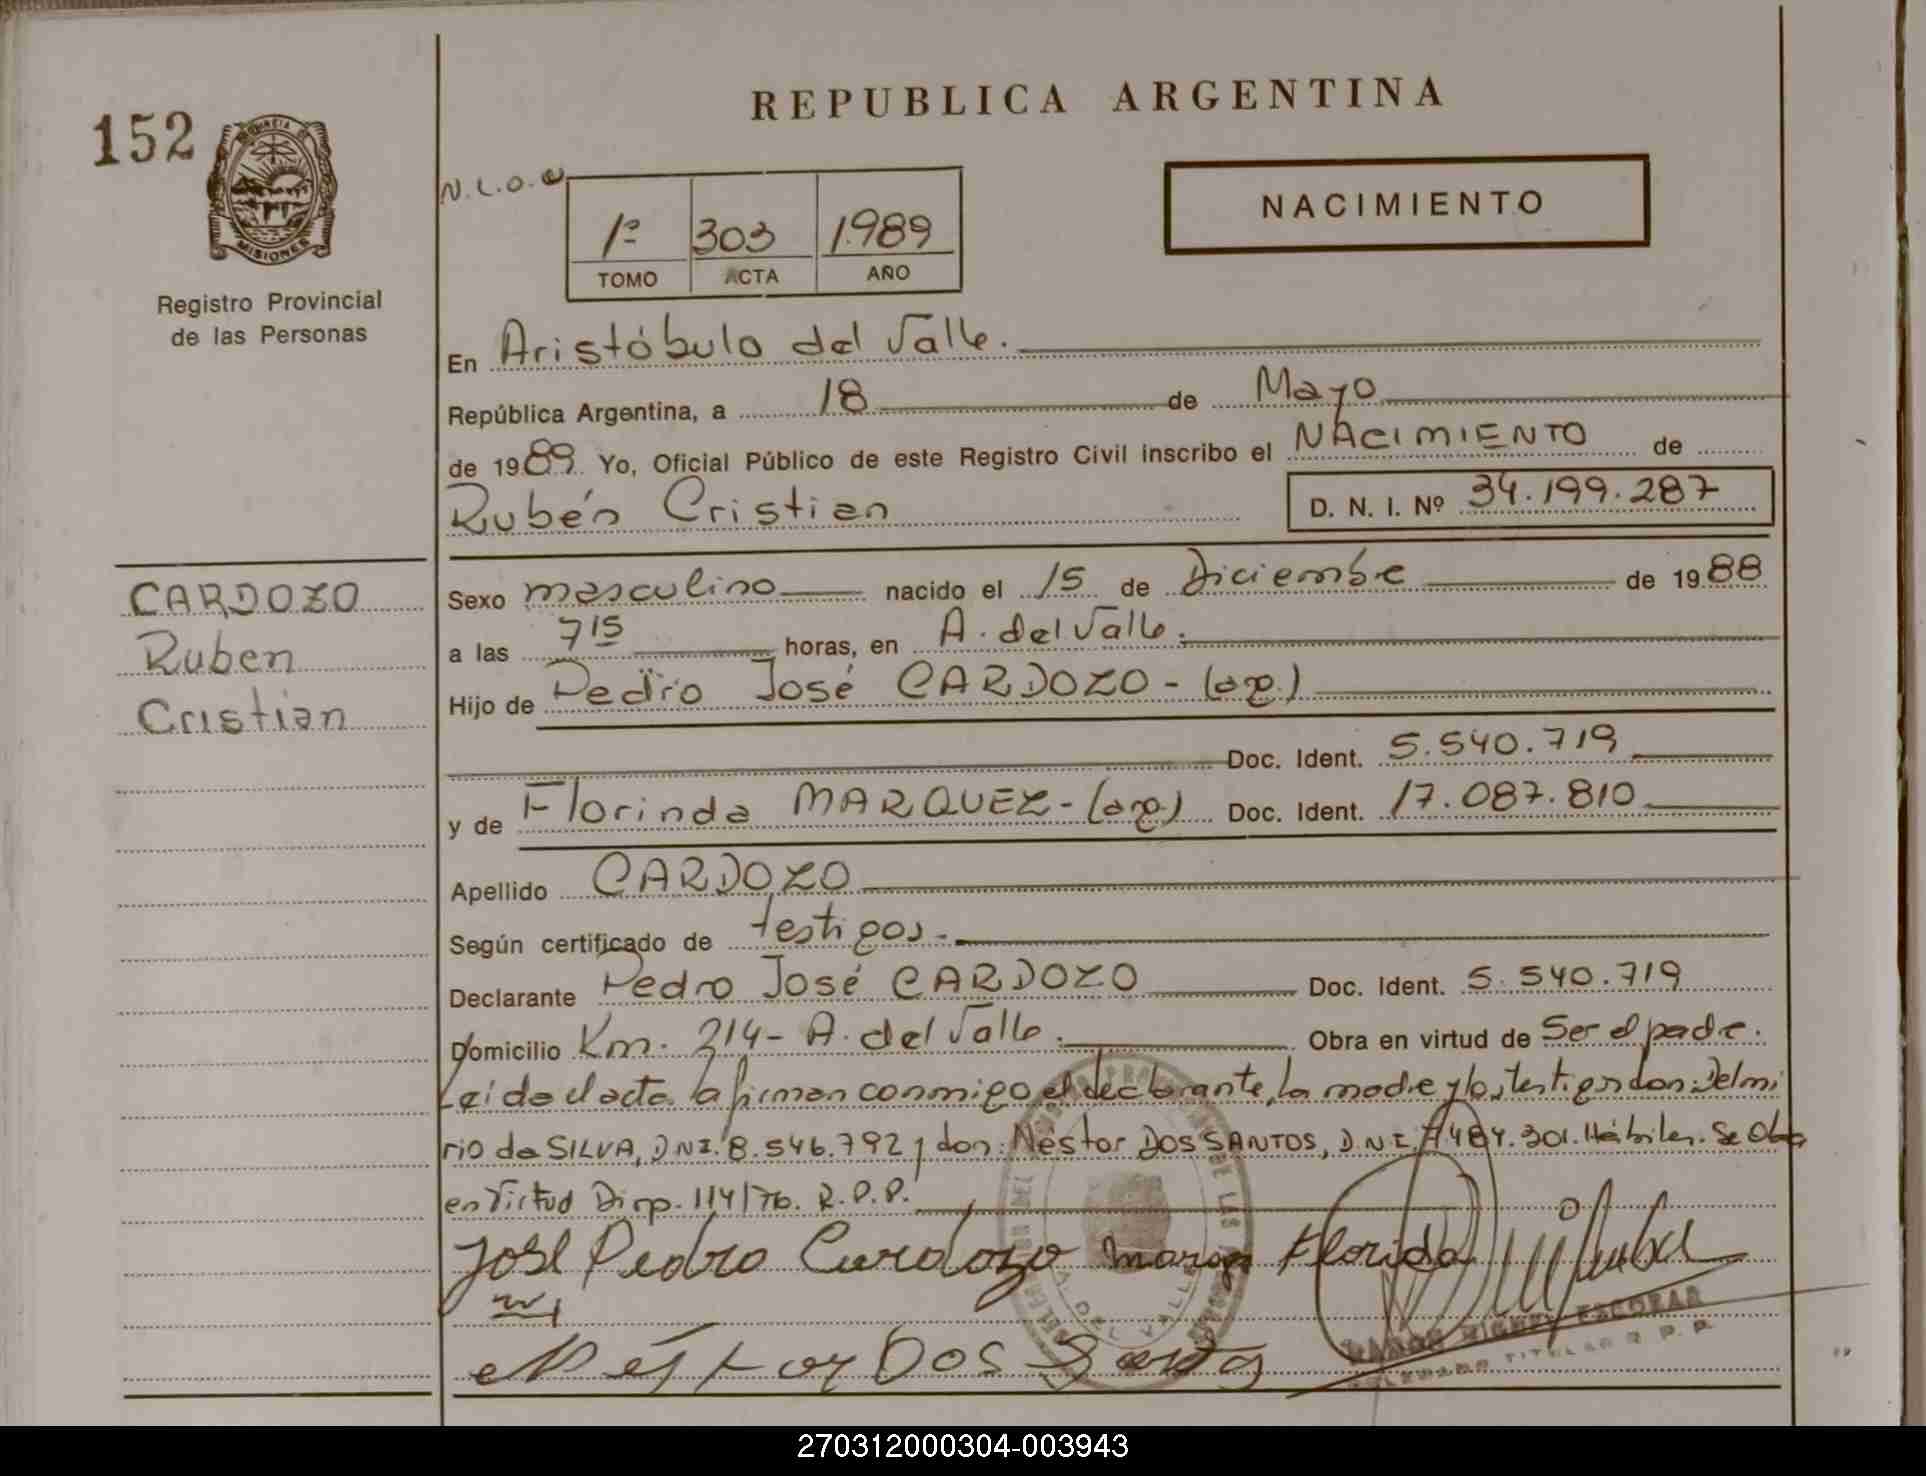 REPUBLICA ARGENTINA
152
PROVINCIA DE
MISIONES
Registro Provincial
de las Personas
N.L.O.
1º 303 1989
TOMO ACTA AÑO
NACIMIENTO
En Aristóbulo del Valle.
República Argentina, a 18 de Mayo
de 1989. Yo, Oficial Público de este Registro Civil inscribo el NACIMIENTO de
Rubén Cristian D. N. I. Nº 34.199.287
CARDOZO
Ruben
Cristian
Sexo masculino nacido el 15 de Diciembre de 1988
a las 7 15 horas, en A. del Valle.
Hijo de Pedro José CARDOZO - (arg.)
Doc. Ident. 5.540.719
y de Florinda MARQUEZ - (arg) Doc. Ident. 17.087.810
Apellido CARDOZO
Según certificado de testigos.
Declarante Pedro José CARDOZO Doc. Ident. 5.540.719
Domicilio Km. 214 - A. del Valle. Obra en virtud de Ser el padre.
Leída el acta la firman conmigo el declarante, la madre y los testigos don: Delmi
rio da SILVA, DNI. 8.546.792 y don: Néstor DOS SANTOS, D.N.I. 484.301. Hábiles. Se Obra
en Virtud Disp. 114/76. R.P.P.
José Pedro Cardozo Florida
Néstor Dos
A. DEL VALLE
RAMON MIGUEL ESCOBAR
DELEGADO TITULAR R. P. P.
270312000304-003943